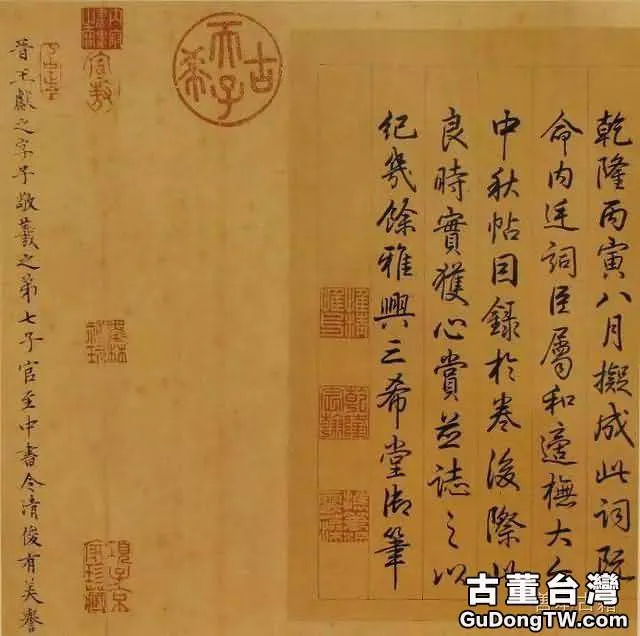 乾隆丙寅八月擬成此詞既
命內廷詞臣屬和適橅大令
中秋帖因錄於卷後際此
良時實獲心賞並誌之以
紀幾餘雅興三希堂御筆
古希天子
晉王獻之字子敬羲之第七子官至中書令清俊有美譽
古董台灣
GuDongTW.com